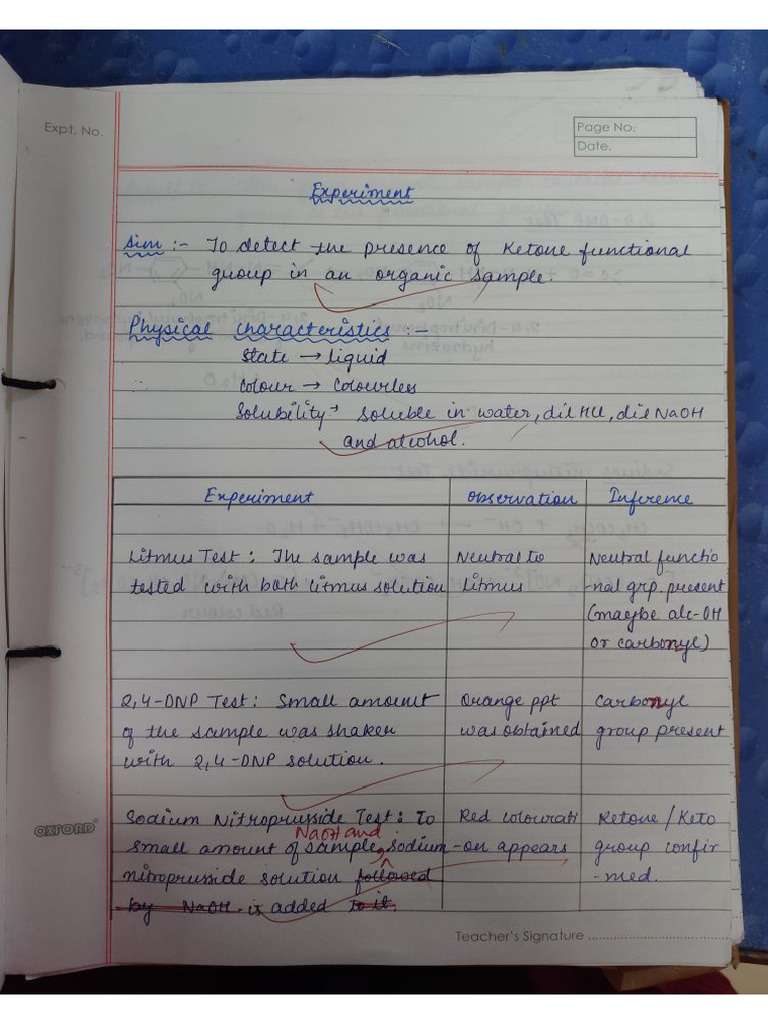 Expt. No.
Page No.
Date.
Experiment
Aim :- To detect the presence of Ketone functional
group in an organic sample.
Physical characteristics :-
State → liquid
Colour → Colourless
Solubility → Soluble in water, dil HCl, dil NaOH
and alcohol.
Experiment Observation Inference
Litmus Test : The sample was Neutral to Neutral functio
tested with both litmus solution Litmus -nal grp. present
(maybe alc-OH
or carbonyl)
2,4-DNP Test : Small amount Orange ppt Carbonyl
of the sample was shaken was obtained group present
with 2,4-DNP solution.
Sodium Nitroprusside Test : To Red colourati Ketone / Keto
NaOH and
small amount of sample, sodium -on appears group confir
nitroprusside solution followed -med.
by NaOH is added to it.
OXFORD
Teacher's Signature